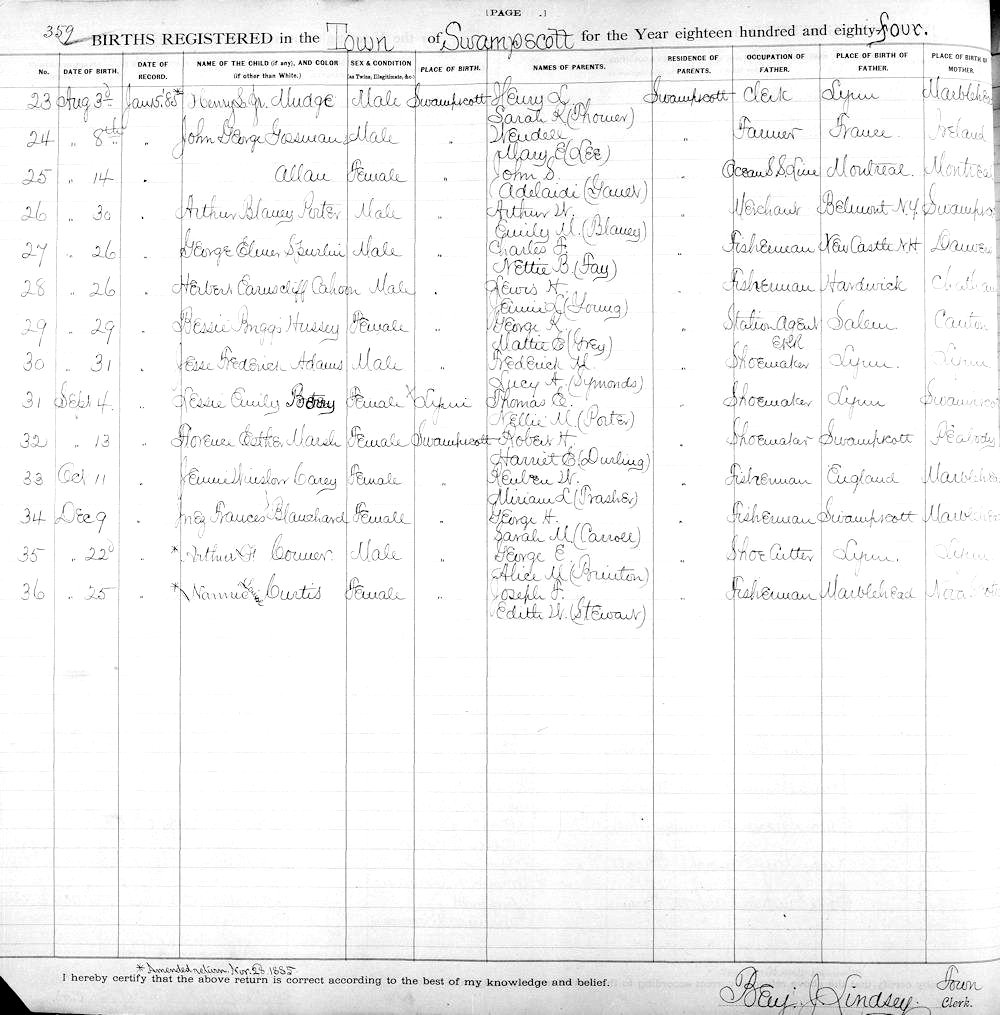 [PAGE .]
359 BIRTHS REGISTERED in the Town of Swampscott for the Year eighteen hundred and eighty-four.
No. DATE OF BIRTH. DATE OF RECORD. NAME OF THE CHILD (if any), AND COLOR (if other than White.) SEX & CONDITION (as Twins, Illegitimate, &c.) PLACE OF BIRTH. NAMES OF PARENTS. RESIDENCE OF PARENTS. OCCUPATION OF FATHER. PLACE OF BIRTH OF FATHER. PLACE OF BIRTH OF MOTHER.
23 Aug 3d Jan 5 '85 * Henry S. Jr. Mudge Male Swampscott Henry L. Swampscott Clerk Lynn Marblehead
Sarah K (Thomer)
24 " 8th " John George Gosman Male " Wendell " Farmer France. Ireland
Mary E (Lee)
25 " 14 " Allan Female " John S. " Ocean S.S. Line Montreal. Montreal
Adelaidi
26 " 30 " Arthur Blaney Porter Male " Arthur W. " Merchant Belmont N.Y. Swampsc
Emily M. (Blaney)
27 " 26 " George Elmer Spurlin Male " Charles F. " Fisherman New Castle N.H. Danvers
Nettie B. (Fay)
28 " 26 " Herbert Cahoon Male " Lewis H. " Fisherman Hardwick Chatham
Jennie L (Young)
29 " 29 " Bessie Briggs Hussey Female " George K. " Station Agent Salem. Canton
ERR
Mattie E (Grey)
30 " 31 " Jesse Frederick Adams Male " Frederick M. " Shoemaker Lynn. Lynn
Lucy A. (Symonds)
31 Sept 4. " Lessie Emily Berry Female * Lynn Thomas E. " Shoemaker Lynn Swampscott
Nellie M. (Porter)
32 " 13 " Florence Esther Marsh Female Swampscott Robert H. " Shoemaker Swampscott Peabody
Harriet E. (Durling)
33 Oct 11 " Jennie Winslow Carey Female " Reuben W. " Fisherman England Marblehe
Miriam L (Prasher)
34 Dec 9 " Inez Frances Blanchard Female " George H. " Fisherman Swampscott Marblehe
Sarah M (Carroll)
35 " 22d " * Arthur H. Conner. Male " George E. " Shoe Cutter Lynn. Lynn
Alice M (Brinton)
36 " 25 " * Nannie Curtis Female " Joseph F. " Fisherman Marblehead
Edith W. (Stewart)
* Amended return, Nov. 28, 1885
I hereby certify that the above return is correct according to the best of my knowledge and belief.
Benj. J. Lindsey. Town
Clerk.